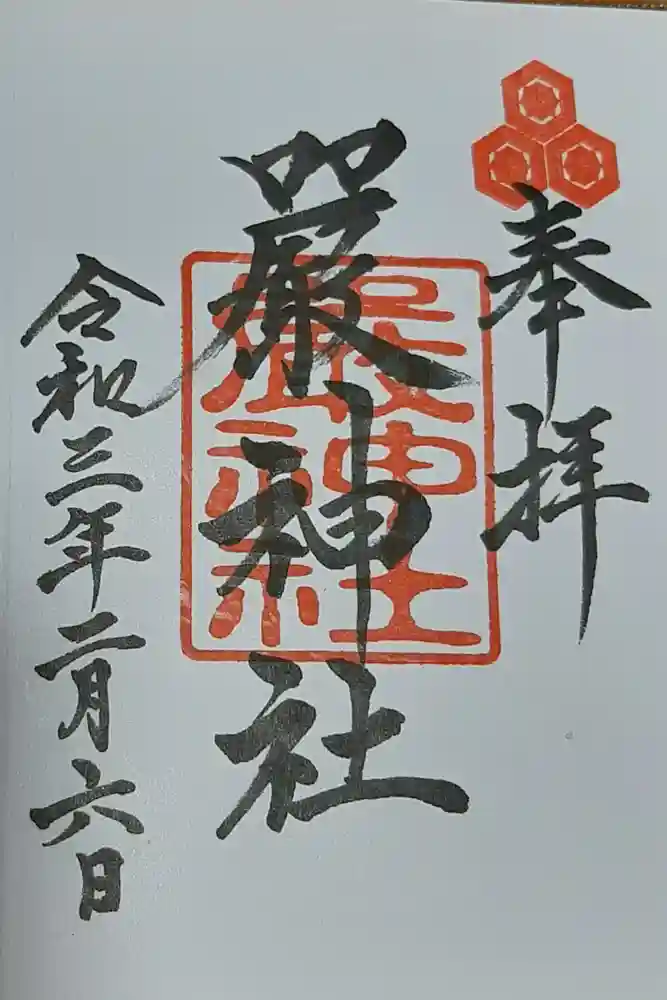 奉拝
嚴神社
令和三年二月六日
嚴神社